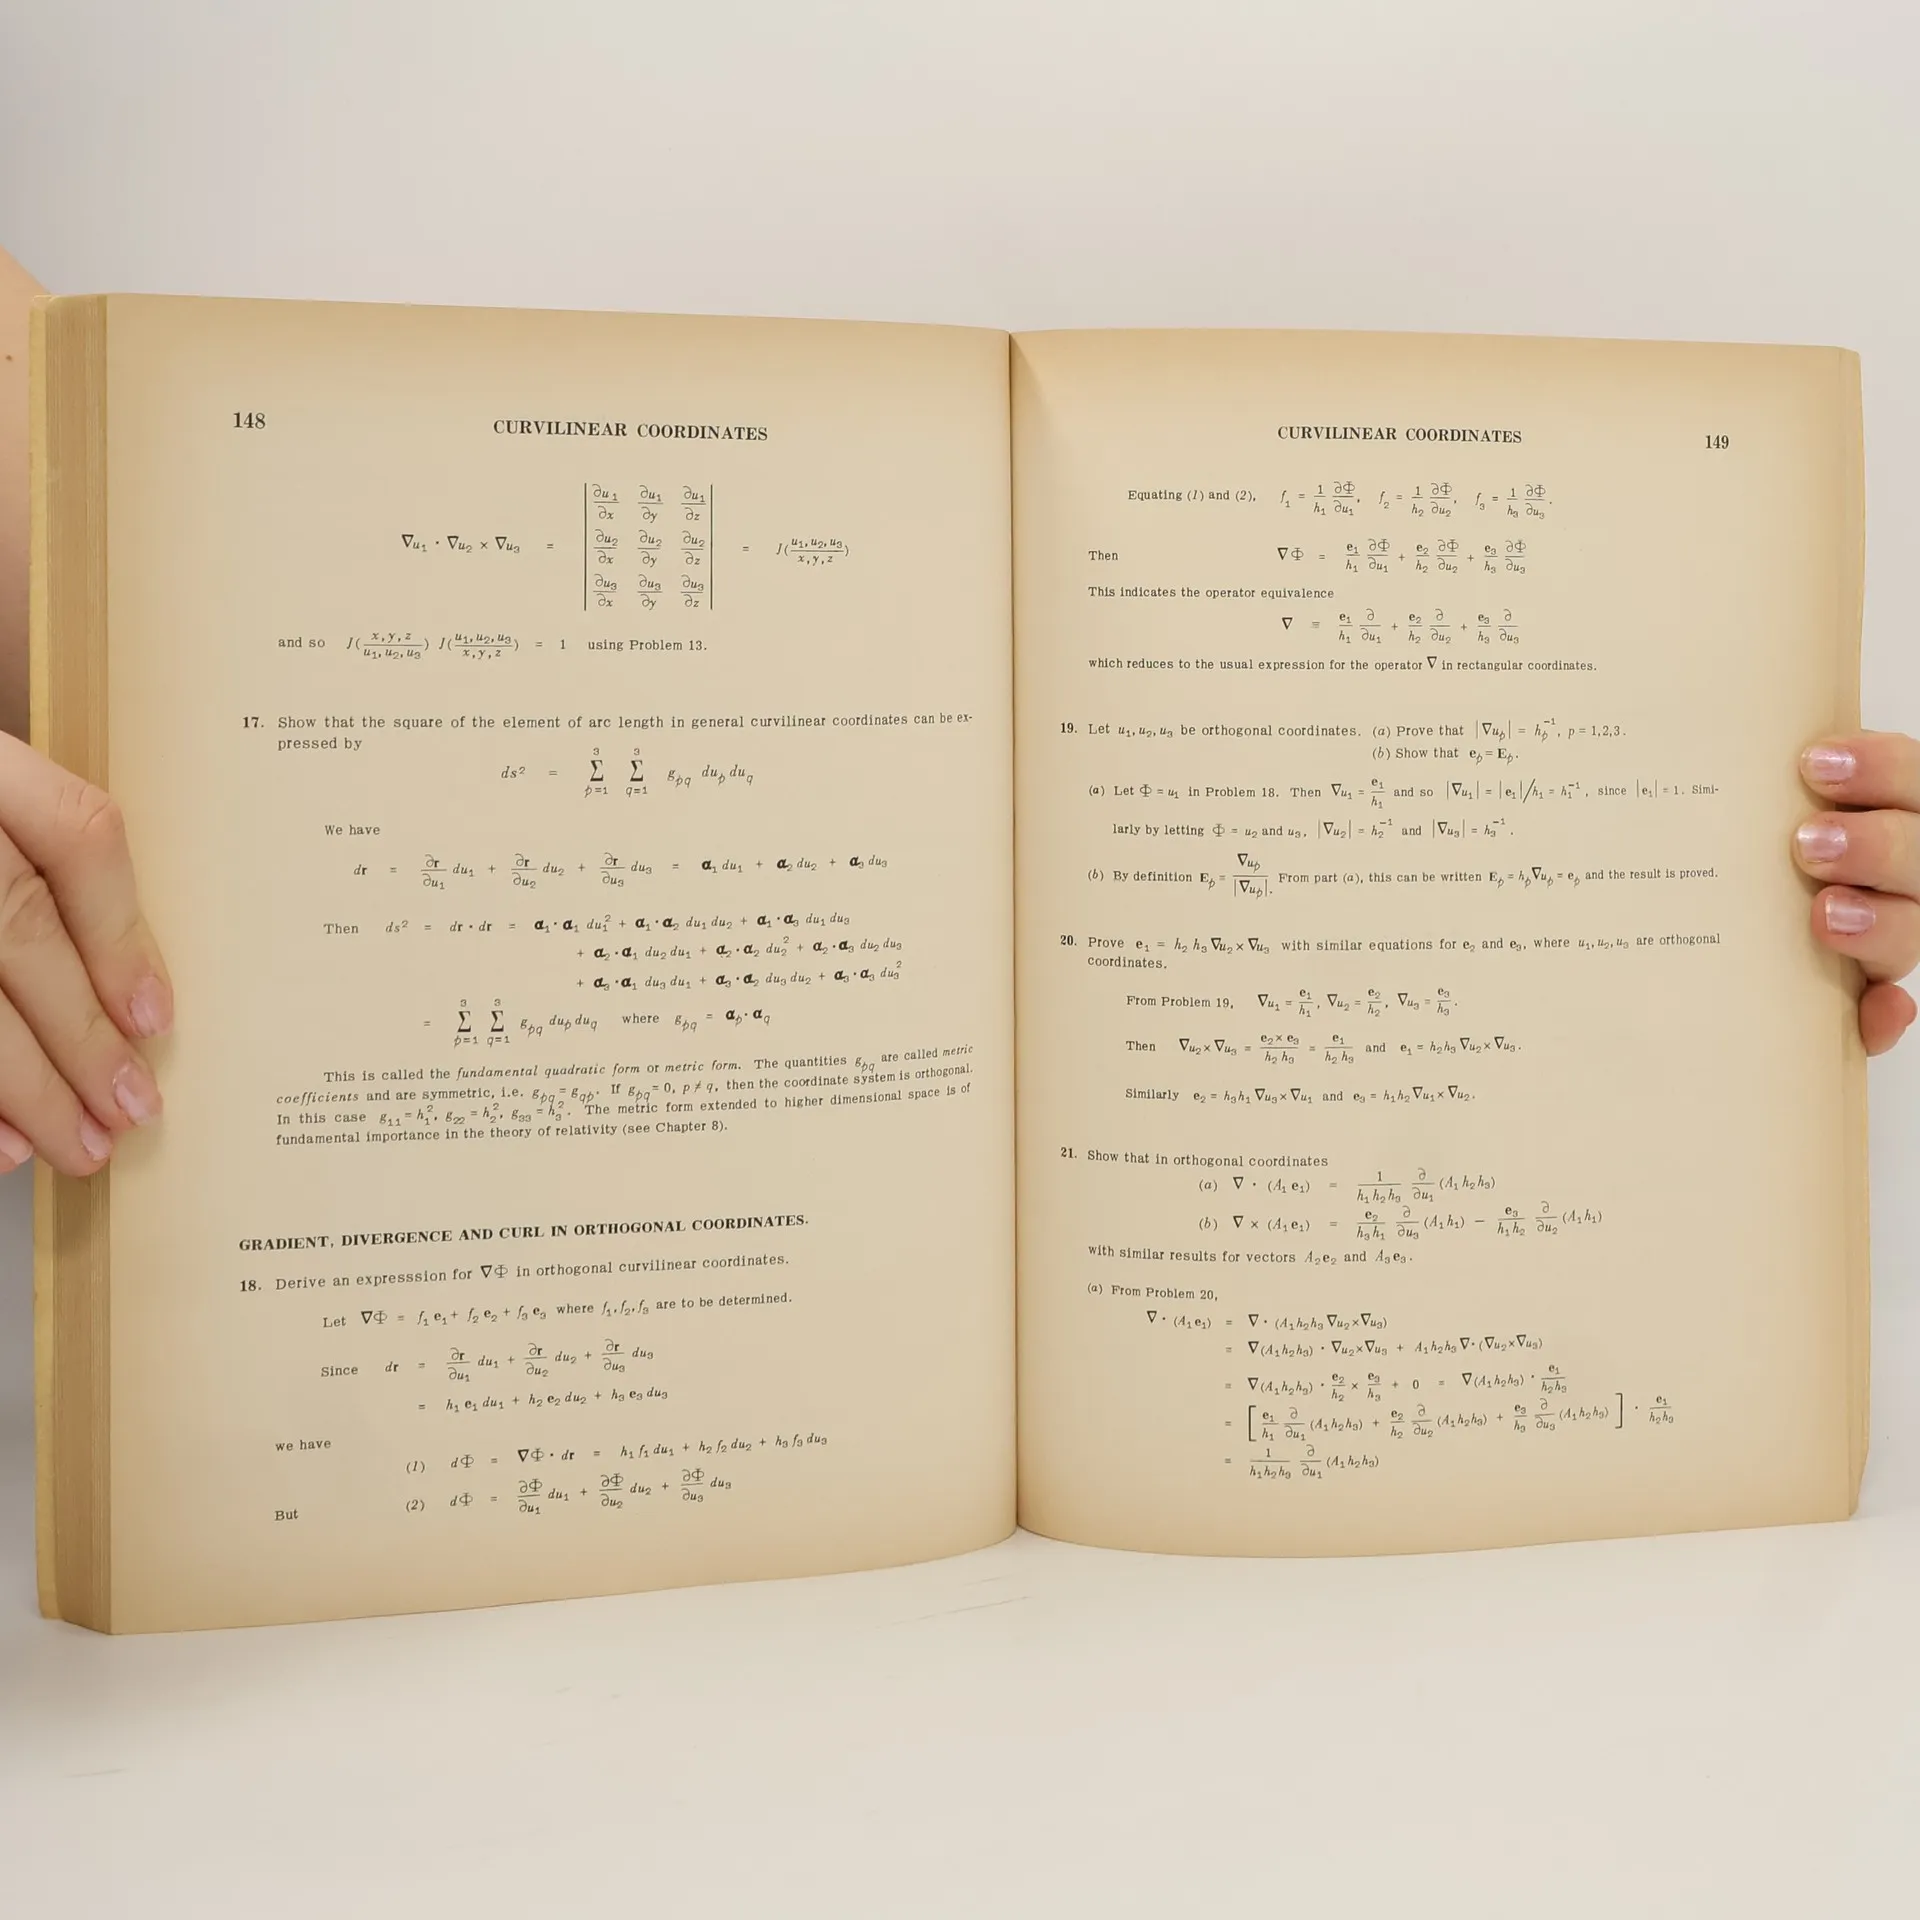 148
CURVILINEAR COORDINATES
∇u₁ · ∇u₂ × ∇u₃ = | ∂u₁/∂x ∂u₁/∂y ∂u₁/∂z ; ∂u₂/∂x ∂u₂/∂y ∂u₂/∂z ; ∂u₃/∂x ∂u₃/∂y ∂u₃/∂z | = J(u₁,u₂,u₃ / x,y,z)
and so J(x,y,z / u₁,u₂,u₃) J(u₁,u₂,u₃ / x,y,z) = 1 using Problem 13.
17. Show that the square of the element of arc length in general curvilinear coordinates can be ex-
pressed by
ds² = Σ_{p=1}^{3} Σ_{q=1}^{3} g_pq du_p du_q
We have
dr = ∂r/∂u₁ du₁ + ∂r/∂u₂ du₂ + ∂r/∂u₃ du₃ = α₁ du₁ + α₂ du₂ + α₃ du₃
Then ds² = dr · dr = α₁·α₁ du₁² + α₁·α₂ du₁ du₂ + α₁·α₃ du₁ du₃
+ α₂·α₁ du₂ du₁ + α₂·α₂ du₂² + α₂·α₃ du₂ du₃
+ α₃·α₁ du₃ du₁ + α₃·α₂ du₃ du₂ + α₃·α₃ du₃²
= Σ_{p=1}^{3} Σ_{q=1}^{3} g_pq du_p du_q where g_pq = α_p · α_q
This is called the fundamental quadratic form or metric form. The quantities g_pq are called metric
coefficients and are symmetric, i.e. g_pq = g_qp. If g_pq = 0, p ≠ q, then the coordinate system is orthogonal.
In this case g₁₁ = h₁², g₂₂ = h₂², g₃₃ = h₃². The metric form extended to higher dimensional space is of
fundamental importance in the theory of relativity (see Chapter 8).
GRADIENT, DIVERGENCE AND CURL IN ORTHOGONAL COORDINATES.
18. Derive an expresssion for ∇Φ in orthogonal curvilinear coordinates.
Let ∇Φ = f₁ e₁ + f₂ e₂ + f₃ e₃ where f₁, f₂, f₃ are to be determined.
Since dr = ∂r/∂u₁ du₁ + ∂r/∂u₂ du₂ + ∂r/∂u₃ du₃
= h₁ e₁ du₁ + h₂ e₂ du₂ + h₃ e₃ du₃
we have
(1) dΦ = ∇Φ · dr = h₁ f₁ du₁ + h₂ f₂ du₂ + h₃ f₃ du₃
But (2) dΦ = ∂Φ/∂u₁ du₁ + ∂Φ/∂u₂ du₂ + ∂Φ/∂u₃ du₃
CURVILINEAR COORDINATES
149
Equating (1) and (2), f₁ = 1/h₁ ∂Φ/∂u₁, f₂ = 1/h₂ ∂Φ/∂u₂, f₃ = 1/h₃ ∂Φ/∂u₃.
Then ∇Φ = e₁/h₁ ∂Φ/∂u₁ + e₂/h₂ ∂Φ/∂u₂ + e₃/h₃ ∂Φ/∂u₃
This indicates the operator equivalence
∇ ≡ e₁/h₁ ∂/∂u₁ + e₂/h₂ ∂/∂u₂ + e₃/h₃ ∂/∂u₃
which reduces to the usual expression for the operator ∇ in rectangular coordinates.
19. Let u₁, u₂, u₃ be orthogonal coordinates. (a) Prove that |∇u_p| = h_p⁻¹, p = 1,2,3.
(b) Show that e_p = E_p.
(a) Let Φ = u₁ in Problem 18. Then ∇u₁ = e₁/h₁ and so |∇u₁| = |e₁|/h₁ = h₁⁻¹, since |e₁| = 1. Simi-
larly by letting Φ = u₂ and u₃, |∇u₂| = h₂⁻¹ and |∇u₃| = h₃⁻¹.
(b) By definition E_p = ∇u_p/|∇u_p|. From part (a), this can be written E_p = h_p ∇u_p = e_p and the result is proved.
20. Prove e₁ = h₂ h₃ ∇u₂ × ∇u₃ with similar equations for e₂ and e₃, where u₁, u₂, u₃ are orthogonal
coordinates.
From Problem 19, ∇u₁ = e₁/h₁, ∇u₂ = e₂/h₂, ∇u₃ = e₃/h₃.
Then ∇u₂ × ∇u₃ = e₂ × e₃/h₂ h₃ = e₁/h₂ h₃ and e₁ = h₂h₃ ∇u₂ × ∇u₃.
Similarly e₂ = h₃h₁ ∇u₃ × ∇u₁ and e₃ = h₁h₂ ∇u₁ × ∇u₂.
21. Show that in orthogonal coordinates
(a) ∇ · (A₁ e₁) = 1/h₁ h₂ h₃ ∂/∂u₁ (A₁ h₂ h₃)
(b) ∇ × (A₁ e₁) = e₂/h₃ h₁ ∂/∂u₃ (A₁ h₁) − e₃/h₁ h₂ ∂/∂u₂ (A₁ h₁)
with similar results for vectors A₂ e₂ and A₃ e₃.
(a) From Problem 20,
∇ · (A₁ e₁) = ∇ · (A₁ h₂ h₃ ∇u₂ × ∇u₃)
= ∇(A₁ h₂ h₃) · ∇u₂ × ∇u₃ + A₁ h₂ h₃ ∇ · (∇u₂ × ∇u₃)
= ∇(A₁ h₂ h₃) · e₂/h₂ × e₃/h₃ + 0 = ∇(A₁ h₂ h₃) · e₁/h₂h₃
= [ e₁/h₁ ∂/∂u₁ (A₁ h₂ h₃) + e₂/h₂ ∂/∂u₂ (A₁ h₂ h₃) + e₃/h₃ ∂/∂u₃ (A₁ h₂ h₃) ] · e₁/h₂h₃
= 1/h₁h₂h₃ ∂/∂u₁ (A₁ h₂ h₃)